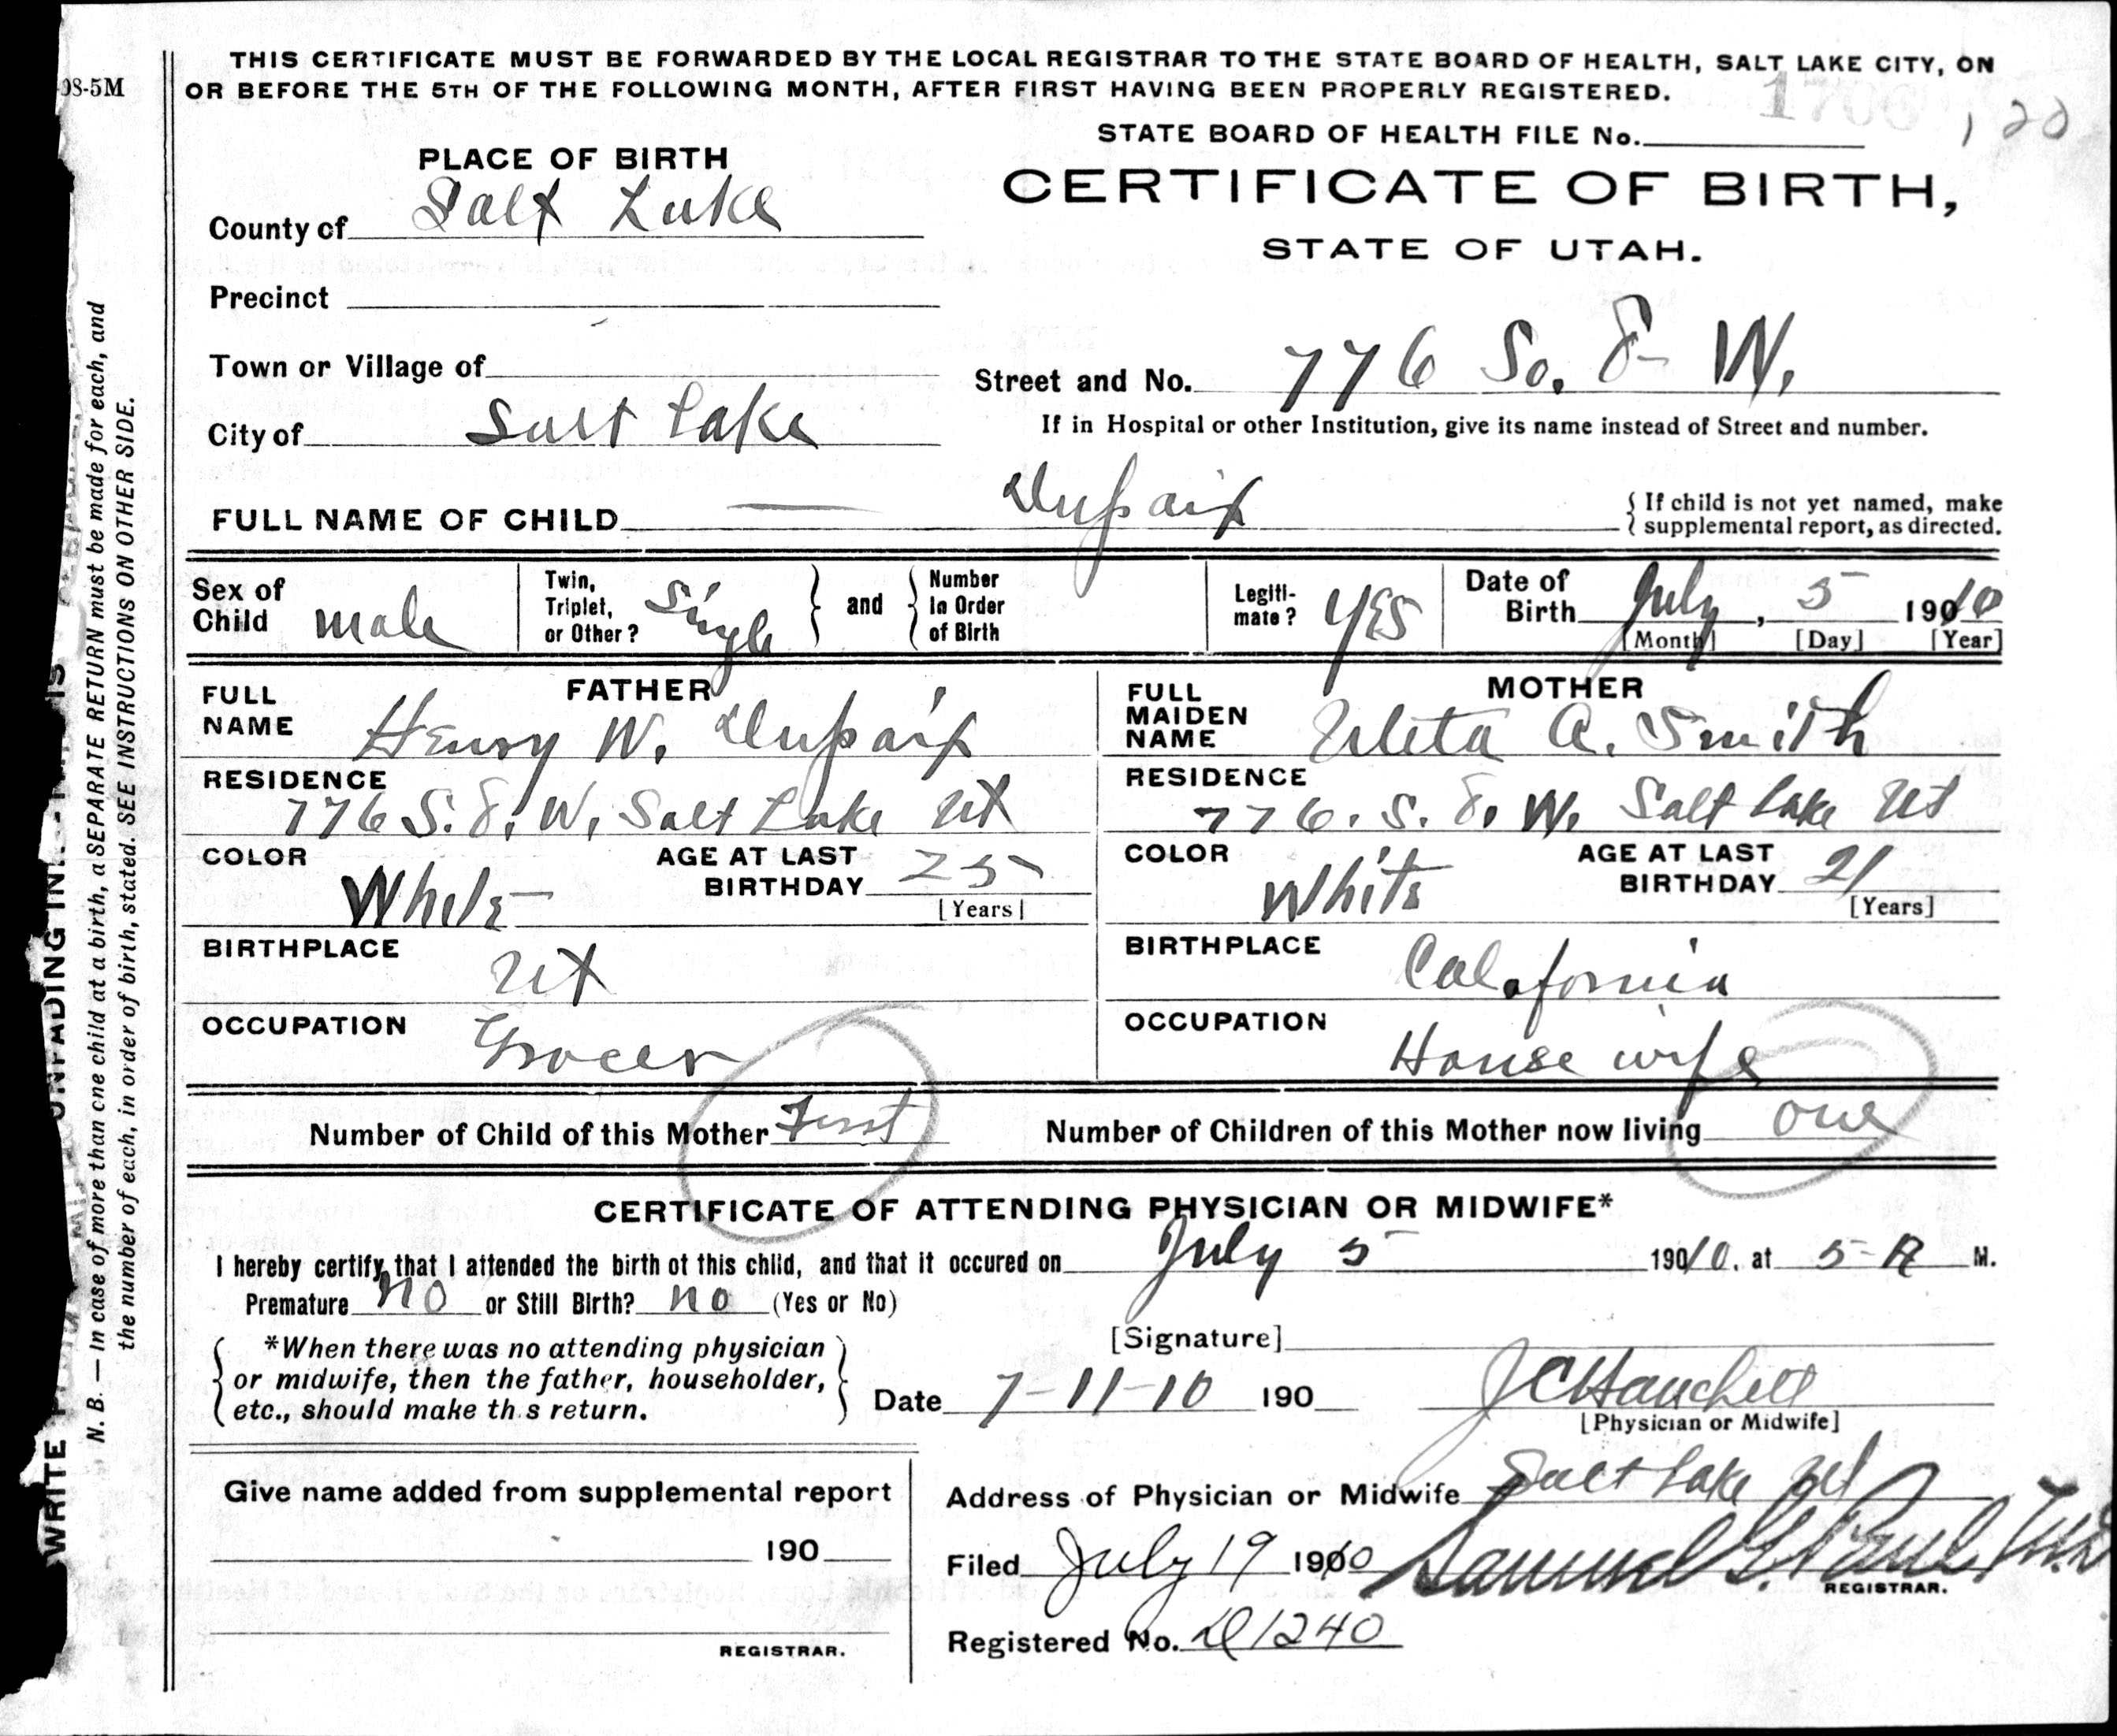 THIS CERTIFICATE MUST BE FORWARDED BY THE LOCAL REGISTRAR TO THE STATE BOARD OF HEALTH, SALT LAKE CITY, ON
OR BEFORE THE 5TH OF THE FOLLOWING MONTH, AFTER FIRST HAVING BEEN PROPERLY REGISTERED.
98-5M
STATE BOARD OF HEALTH FILE No.
120
PLACE OF BIRTH
CERTIFICATE OF BIRTH,
STATE OF UTAH.
County of Salt Lake
Precinct
Town or Village of
Street and No. 776 So. 8 W.
City of Salt Lake
If in Hospital or other Institution, give its name instead of Street and number.
FULL NAME OF CHILD — Dupaix
If child is not yet named, make
supplemental report, as directed.
Sex of Child male
Twin, Triplet, or Other? Single and Number In Order of Birth
Legiti-mate? Yes
Date of Birth July, 5 1910
[Month] [Day] [Year]
FATHER
FULL NAME Henry W. Dupaix
RESIDENCE 776 S. 8. W, Salt Lake Ut
COLOR White AGE AT LAST BIRTHDAY 25
[Years]
BIRTHPLACE Ut
OCCUPATION Grocer
MOTHER
FULL MAIDEN NAME A. Smith
RESIDENCE 776. S. 8. W. Salt Lake Ut
COLOR White AGE AT LAST BIRTHDAY 21
[Years]
BIRTHPLACE California
OCCUPATION House wife
Number of Child of this Mother First Number of Children of this Mother now living one
CERTIFICATE OF ATTENDING PHYSICIAN OR MIDWIFE*
I hereby certify that I attended the birth of this child, and that it occured on July 5 1910. at 5-A M.
Premature No or Still Birth? No (Yes or No)
*When there was no attending physician
or midwife, then the father, householder,
etc., should make this return.
[Signature]
Date 7-11-10 190 J C Hanchett
[Physician or Midwife]
Give name added from supplemental report
190
REGISTRAR.
Address of Physician or Midwife Salt Lake Ut
Filed July 19 1910 Samuel G. Paul
REGISTRAR.
Registered No. D1240
WRITE UNFADING INK
N. B. — In case of more than one child at a birth, a SEPARATE RETURN must be made for each, and
the number of each, in order of birth, stated. SEE INSTRUCTIONS ON OTHER SIDE.